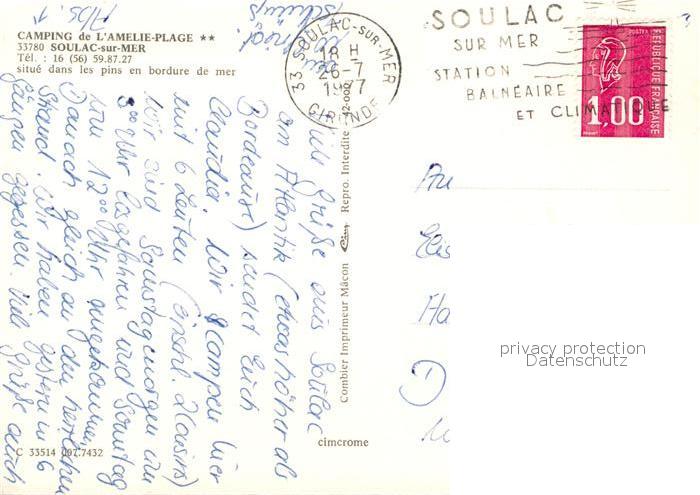 CAMPING de L'AMELIE-PLAGE ★★
33780 SOULAC-sur-MER
Tél. : 16 (56) 59.87.27
situé dans les pins en bordure de mer
33 SOULAC-SUR-MER
18 H
26-7
1977
GIRONDE
SOULAC
SUR MER
STATION
BALNÉAIRE
ET CLIMATIQUE
POSTES
RÉPUBLIQUE FRANÇAISE
1,00
Viele Grüße aus Soulac
am Atlantik (etwas höher als
Bordeaux) sendet Euch
Claudia. Wir campen hier
mit 6 Leuten (einschl.
Wir sind Samstagmorgen um
Uhr losgefahren und Sonntag
um 12 00 Uhr angekommen.
Danach gleich an den herrlichen
Strand. Wir haben gestern in 6
Gängen gegessen. Viel Grüße auch
An
Ha
D
Combier Imprimeur Mâcon Cim Repro. Interdite
cimcrome
C 33514 097.7432
privacy protection
Datenschutz